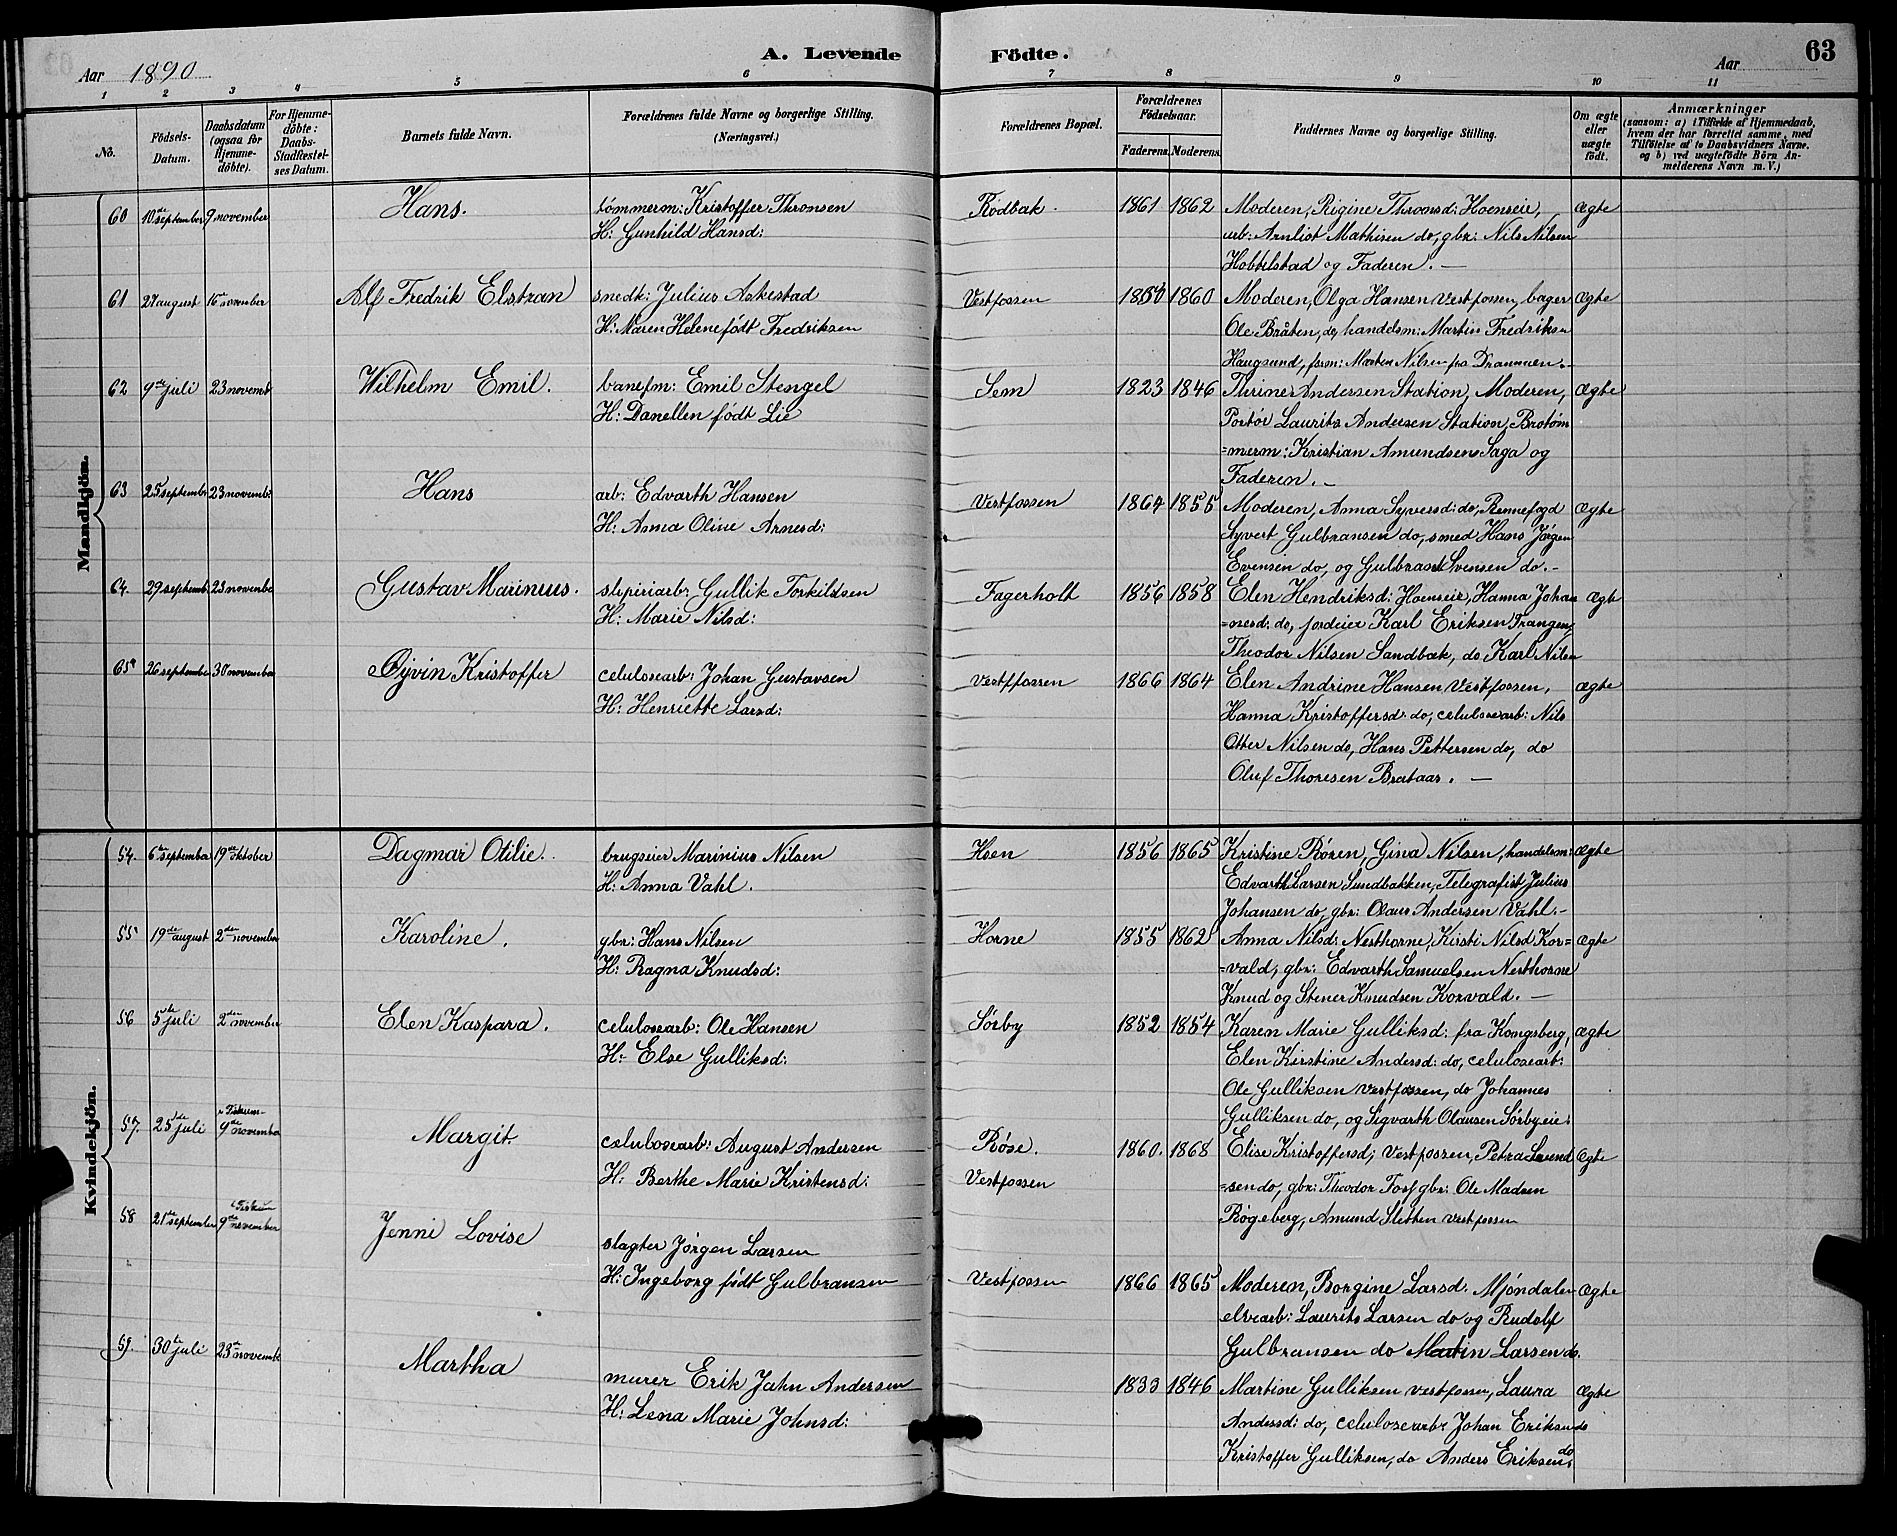 A. Levende Födte.
63
Aar 1890
Aar
1 2 3 4 5 6 7 8 9 10 11
No.
Födsels-Datum.
Daabsdatum (ogsaa for Hjemme-döbte).
For Hjemme-döbte: Daabs-Stadfæstel-ses Datum.
Barnets fulde Navn.
Forældrenes fulde Navne og borgerlige Stilling.
(Næringsvei.)
Forældrenes Bopæl.
Forældrenes Födselsaar.
Faderens. Moderens.
Faddernes Navne og borgerlige Stilling.
Om ægte eller uægte født.
Anmærkninger
(saasom: a) i Tilfælde af Hjemmedaab,
hvem der har forrettet samme, med
Tilföielse af to Daabsvidners Navne.
og b) ved uægtefödte Börn An-
melderens Navn m. V.)
Mandkjön.
60 10de september 9 november Hans. tømmerm: Kristoffer Thronsen Rødbak. 1861 1862 Moderen, Rigine Thronsd: Hoenseie, ægte
H: Gunhild Hansd: arb: Arnliot Mathisen do, gbr: Nils Nilsen
Hobbelstad og Faderen. —
61 27 august 16 november Alf Fredrik Elstran snedk: Julius Askestad Vestfossen 1850 1860 Moderen, Olga Hansen Vestfossen, bager ægte
H: Maren Helene født Fredriksen Ole Bråten, do, handelsm: Martin Fredriksen
Haugsund, form: Morten Nilsen fra Drammen. -
62 9de juli 23 novemb Wilhelm Emil. banefm: Emil Stengel Sem 1823 1846 Thrine Andersen Station, Moderen, ægte
H: Danellen født Lie Portør Laurits Andersen Station, Brotøm
=merm: Kristian Amundsen Saga og
Faderen. —
63 25 septemb 23 novemb: Hans arb: Edvarth Hansen Vestfossen 1864 1855 Moderen, Anna Syversd: do, Rennefogd ægte
H: Anna Oline Arnesd: Syvert Gulbransen do, smed Hans Jørgen
Evensen do, og Gulbrand Svensen do. -
64. 29 septemb 23 novembe Gustav Marinus. slipiriarb: Gullik Torkildsen Fagerholt 1856 1858 Elen Hendriksd: Hoenseie, Hanna Johan ægte
H: Marie Nilsd: =nesd: do, jordeier Karl Eriksen Trangen,
Theodor Nilsen Sandbæk, do Karl Nilsen
65 26 september 30 november Øyvin Kristoffer celulosearb: Johan Gustavsen Vestffossen 1866 1864 Elen Andrine Hansen Vestfossen, ægte
H: Henriette Larsd: Hanna Kristoffersd: do, celulosearb: Nils
Otter Nilsen do, Hans Pettersen do, do
Oluf Thoresen Brataas. —
Kvindekjön.
54. 6te september 19de oktober Dagmar Otilie. brugseier Marinius Nilsen Hoen 1856 1865 Kristine Røren, Gina Nilsen, handelsm: ægte
H: Anna Vahl. Edvarth Larsen Sundbakken, Telegrafist Julius
Johansen do, gbr: Olaus Andersen Vahl. -
55 19de august 2den november Karoline. gbr: Hans Nilsen Horne 1855 1862 Anna Nilsd: Nesthorne, Kirsti Nilsd Kor= ægte
H: Ragna Knudsd: =vald; gbr: Edvarth Samuelsen Nesthorne
Knud og Stener Knudsen Korvald. —
56 5te juli 2den november Elen Kaspara. celulosearb: Ole Hansen Sørby 1852 1854 Karen Marie Gulliksd: fra Kongsberg, ægte
H: Else Gulliksd: Elen Kirstine Andersd: do, celulosearb:
Ole Gulliksen Vestfossen, do Johannes
Gulliksen do, og Sigvarth Olausen Sørbyeie.
57. 25de juli Fiskum- 9de november Margit. celulosearb: August Andersen Røse. Vestfossen 1860. 1868 Elise Kristoffersd; Vestfossen, Petra Laund ægte
H: Berthe Marie Kristensd: =sen do, gbr: Theodor Fosf gbr: Ole Madsen
Røgeberg, Amund Sletten Vestfossen
58 21de september Fiskum 9de november Jenni Lovise slagter Jørgen Larsen Vestfossen 1866 1865 Moderen, Borgine Larsd: Mjøndalen ægte
H: Ingeborg født Gulbransen elvearb: Laurits Larsen do og Rudolf
Gulbransen do Martin Larsen do.
59. 30te juli 23de novemb Martha murer Erik Jahn Andersen 1833 1846 Martine Gulliksen Vestfossen, Laura ægte
H: Lena Marie Johnsd: Andersd: do, celulosearb: Johan Eriksen do
Kristoffer Gulliksen, do Anders Eriksen do.